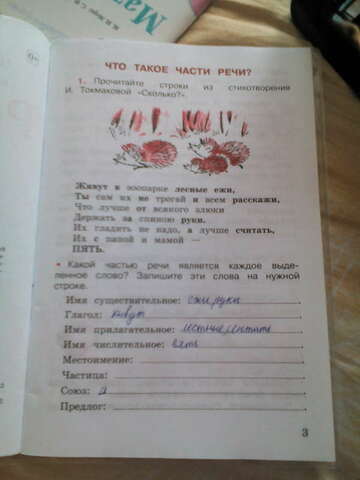 Мат
ЧТО ТАКОЕ ЧАСТИ РЕЧИ?
1. Прочитайте строки из стихотворения
И. Токмаковой «Сколько?».
Живут в зоопарке лесные ежи,
Ты сам их не трогай и всем расскажи,
Что лучше от всякого злюки
Держать за спиною руки.
Их гладить не надо, а лучше считать,
Их с папой и мамой —
ПЯТЬ.
• Какой частью речи является каждое выде-
ленное слово? Запишите эти слова на нужной
строке.
Имя существительное: ежи руки
Глагол: живут
Имя прилагательное: лестные
Имя числительное: пять
Местоимение:
Частица:
Союз: а
Предлог:
3